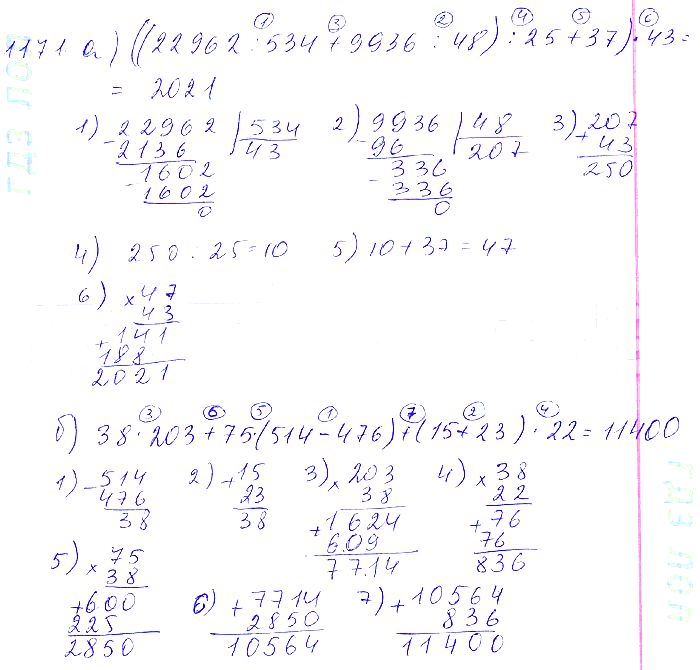 1171 а) ((22962 : 534 + 9936 : 48) : 25 + 37) · 43 =
① ③ ② ④ ⑤ ⑥
= 2021
1) 22962 | 534
- 2136 | 43
1602
- 1602
0
2) 9936 | 48
- 96 | 207
336
- 336
0
3) 207
+ 43
250
4) 250 : 25 = 10
5) 10 + 37 = 47
6) × 47
43
+ 141
188
2021
б) 38 · 203 + 75 · (514 - 476) + (15 + 23) · 22 = 11400
③ ⑥ ⑤ ① ⑦ ② ④
1) - 514
476
38
2) + 15
23
38
3) × 203
38
+ 1624
609
7714
4) × 38
22
+ 76
76
836
5) × 75
38
+ 600
225
2850
6) + 7714
2850
10564
7) + 10564
836
11400
ГДЗ ЛОЛ
ГДЗ ЛОЛ